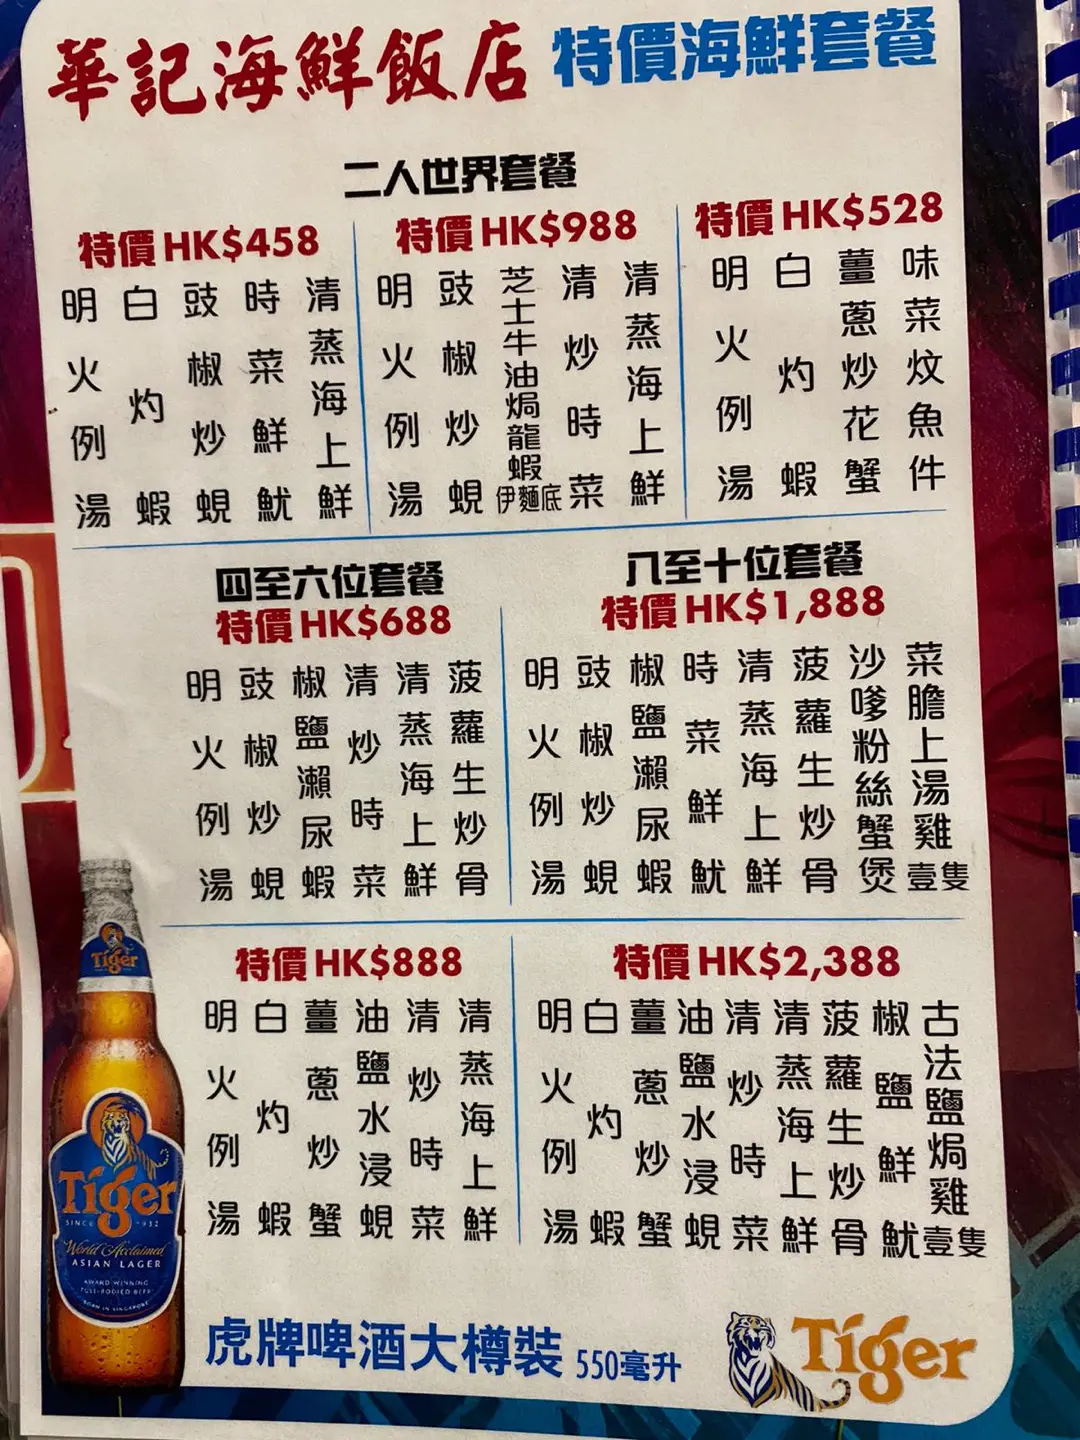 華記海鮮飯店 特價海鮮套餐
二人世界套餐
特價HK$458
明火例湯
白灼蝦
豉椒炒蜆
時菜鮮魷
清蒸海上鮮
特價HK$988
明火例湯
豉椒炒蜆
芝士牛油焗龍蝦伊麵底
清炒時菜
清蒸海上鮮
特價HK$528
明火例湯
白灼蝦
薑蔥炒花蟹
味菜炆魚件
四至六位套餐
特價HK$688
明火例湯
豉椒炒蜆
椒鹽瀨尿蝦
清炒時菜
清蒸海上鮮
菠蘿生炒骨
八至十位套餐
特價HK$1,888
明火例湯
豉椒炒蜆
椒鹽瀨尿蝦
時菜鮮魷
清蒸海上鮮
菠蘿生炒骨
沙嗲粉絲蟹煲
菜膽上湯雞壹隻
特價HK$888
明火例湯
白灼蝦
薑蔥炒蟹
油鹽水浸蜆
清炒時菜
清蒸海上鮮
特價HK$2,388
明火例湯
白灼蝦
薑蔥炒蟹
油鹽水浸蜆
清炒時菜
清蒸海上鮮
菠蘿生炒骨
椒鹽鮮魷
古法鹽焗雞壹隻
Tiger
Tiger
SINCE 1932
World Acclaimed
ASIAN LAGER
AWARD WINNING
FULL-BODIED BEER
BORN IN SINGAPORE
虎牌啤酒大樽裝 550毫升
Tiger